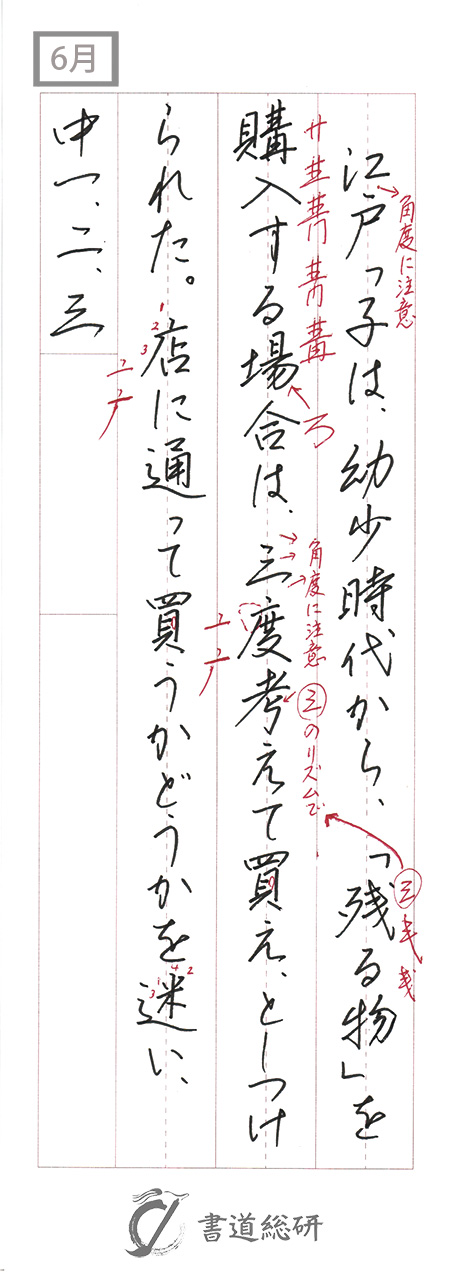 6月
江戸っ子は、幼少時代から、「残る物」を
角度に注意
購入する場合は、三度考えて買え、としつけ
角度に注意
三のリズムで
三
られた。店に通って買うかどうかを迷い、
1
2
3
1
2
3
4
中一、二、三
書道総研